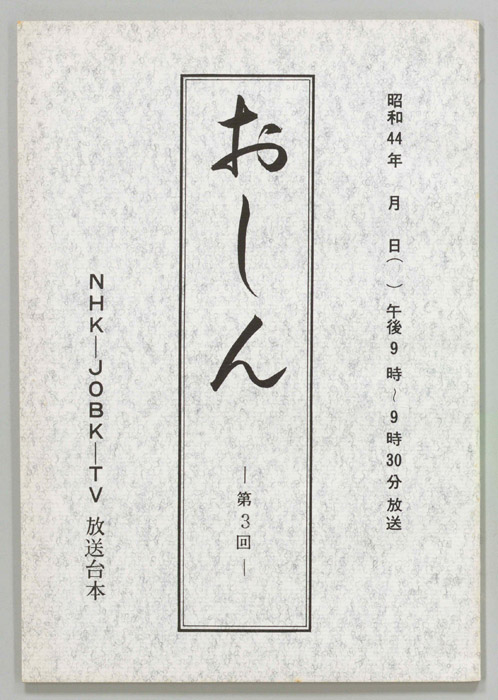 昭和44年　月　日（　）午後9時～9時30分放送
おしん
―第3回―
NHK―JOBK―TV 放送台本